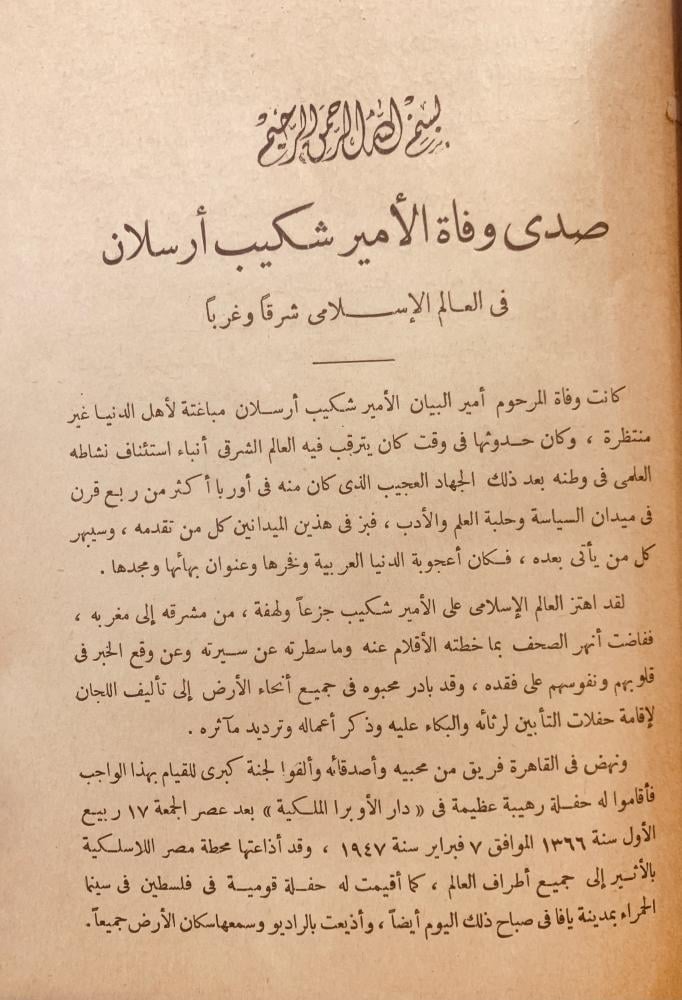 بسم الله الرحمن الرحيم
صدى وفاة الأمير شكيب أرسلان
فى العالم الإسلامى شرقاً وغرباً
كانت وفاة المرحوم أمير البيان الأمير شكيب أرسلان مباغتة لأهل الدنيا غير
منتظرة ، وكان حدوثها فى وقت كان يترقب فيه العالم الشرقى أنباء استئناف نشاطه
العلمى فى وطنه بعد ذلك الجهاد العجيب الذى كان منه فى أوربا أكثر من ربع قرن
فى ميدان السياسة وحلبة العلم والأدب ، فبز فى هذين الميدانين كل من تقدمه ، وسيبهر
كل من يأتى بعده ، فكان أعجوبة الدنيا العربية وفخرها وعنوان بهائها ومجدها .
لقد اهتز العالم الإسلامى على الأمير شكيب جزعاً ولهفة ، من مشرقه إلى مغربه ،
ففاضت أنهر الصحف بما خطته الأقلام عنه وما سطرته عن سيرته وعن وقع الخبر فى
قلوبهم ونفوسهم على فقده ، وقد بادر محبوه فى جميع أنحاء الأرض إلى تأليف اللجان
لإقامة حفلات التأبين لرثائه والبكاء عليه وذكر أعماله وترديد مآثره .
ونهض فى القاهرة فريق من محبيه وأصدقائه وألفوا لجنة كبرى للقيام بهذا الواجب
فأقاموا له حفلة رهيبة عظيمة فى « دار الأوبرا الملكية » بعد عصر الجمعة ١٧ ربيع
الأول سنة ١٣٦٦ الموافق ٧ فبراير سنة ١٩٤٧ ، وقد أذاعتها محطة مصر اللاسلكية
بالأثير إلى جميع أطراف العالم ، كما أقيمت له حفلة قومية فى فلسطين فى سينما
الحمراء بمدينة يافا فى صباح ذلك اليوم أيضاً ، وأذيعت بالراديو وسمعها سكان الأرض جميعاً .